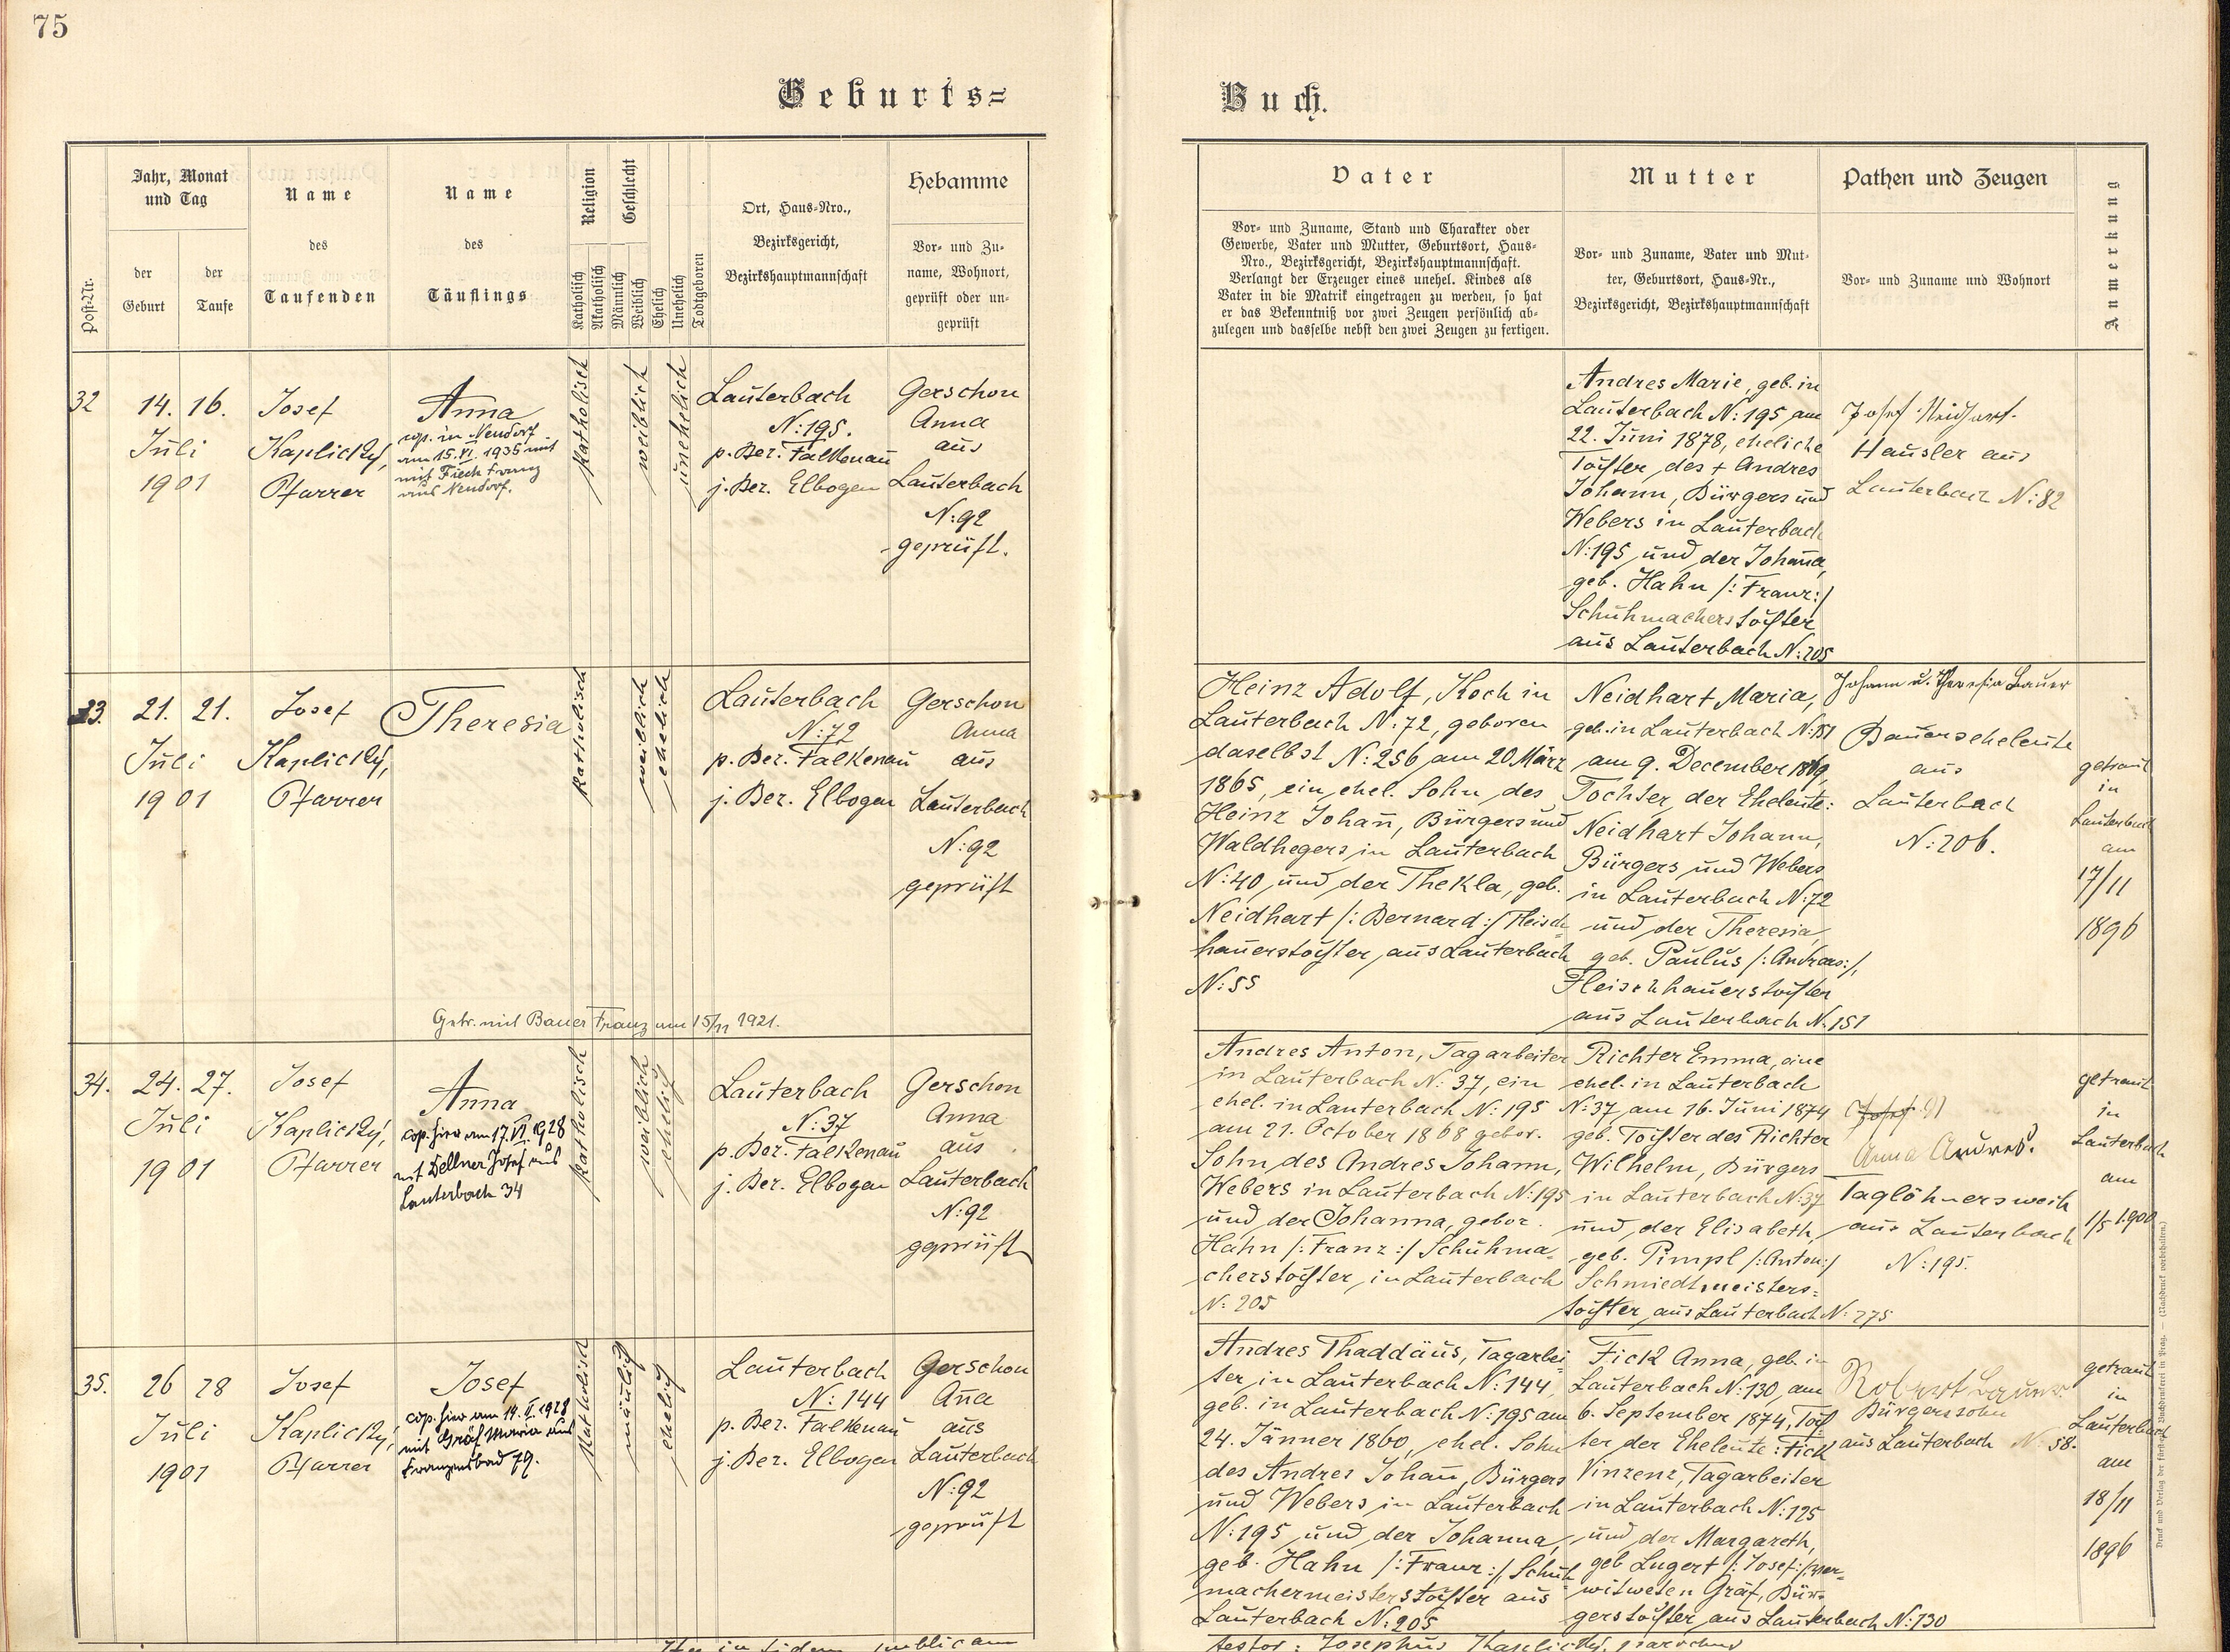 75
Geburts=
Buch.
Post-Nr.
Jahr, Monat
und Tag
der
Geburt
der
Taufe
Name
des
Taufenden
Name
des
Täuflings
Religion
Katholisch
Akatholisch
Geschlecht
Männlich
Weiblich
Ehelich
Unehelich
Todtgeboren
Ort, Haus-Nro.,
Bezirksgericht,
Bezirkshauptmannschaft
Hebamme
Vor- und Zu-
name, Wohnort,
geprüft oder un-
geprüft
Vater
Vor- und Zuname, Stand und Charakter oder
Gewerbe, Vater und Mutter, Geburtsort, Haus-
Nro., Bezirksgericht, Bezirkshauptmannschaft.
Verlangt der Erzeuger eines unehel. Kindes als
Vater in die Matrik eingetragen zu werden, so hat
er das Bekenntniß vor zwei Zeugen persönlich ab-
zulegen und dasselbe nebst den zwei Zeugen zu fertigen.
Mutter
Vor- und Zuname, Vater und Mut-
ter, Geburtsort, Haus-Nr.,
Bezirksgericht, Bezirkshauptmannschaft
Pathen und Zeugen
Vor- und Zuname und Wohnort
Anmerkung
32
14. 16.
Juli
1901
Josef
Kaplický,
Pfarrer
Anna
cop. in Neudorf
am 15.VI.1935 mit
mit Fiech Franz
aus Neudorf.
katholisch
weiblich
unehelich
Lauterbach
N:195.
p. Bez. Falkenau
j. Bez. Elbogen
Gerschon
Anna
aus
Lauterbach
N:92
geprüft.
Andres Marie, geb. in
Lauterbach N:195 am
22. Juni 1878, eheliche
Tochter des + Andres
Johann, Bürgers und
Webers in Lauterbach
N:195 und der Johanna,
geb. Hahn /:Franz:/
Schuhmacherstochter
aus Lauterbach N:205
Josef Neidhart
Häusler aus
Lauterbach N:82
33.
21. 21.
Juli
1901
Josef
Kaplický,
Pfarrer
Theresia
katholisch
weiblich
ehelich
Lauterbach
N:72
p. Bez. Falkenau
j. Bez. Elbogen
Gerschon
Anna
aus
Lauterbach
N:92
geprüft
Getr. mit Bauer Franz am 15/11 1921.
Heinz Adolf, Koch in
Lauterbach N:72, geboren
daselbst N:256 am 20 März
1865, ein ehel. Sohn des
Heinz Johañ, Bürgers und
Waldhegers in Lauterbach
N:40 und der Thekla, geb.
Neidhart /:Bernard:/ Fleisch=
hauerstochter, aus Lauterbach
N:55
Neidhart Maria,
geb. in Lauterbach N:151
am 9. December 1869,
Tochter der Eheleute:
Neidhart Johann,
Bürgers und Webers
in Lauterbach N:72
und der Theresia,
geb. Paulus /:Andreas:/,
Fleischhauerstochter
aus Lauterbach N:151
Johann u. Theresia Bauer
Bauerseheleute
aus
Lauterbach
N:206.
getraut
in
Lauterbach
am
17/11
1896
34.
24. 27.
Juli
1901
Josef
Kaplický,
Pfarrer
Anna
cop. hier am 17.VI.1928
mit Dellner Josef aus
Lauterbach 34
katholisch
weiblich
ehelich
Lauterbach
N:37
p. Bez. Falkenau
j. Bez. Elbogen
Gerschon
Anna
aus
Lauterbach
N:92
geprüft
Andres Anton, Tagarbeiter
in Lauterbach N:37, ein
ehel. in Lauterbach N:195
am 21. October 1868 gebor.
Sohn des Andres Johann,
Webers in Lauterbach N:195
und der Johanna, gebor.
Hahn /:Franz:/ Schuhma=
cherstochter, in Lauterbach
N:205
Richter Emma, eine
ehel. in Lauterbach
N:37 am 16. Juni 1874
geb. Tochter des Richter
Wilhelm, Bürgers
in Lauterbach N:37
und der Elisabeth,
geb. Pimpl /:Anton:/
Schmiedtmeisters=
tochter, aus Lauterbach N:275
Josef
Anna Andres.
Taglöhnersweib
aus Lauterbach
N:195.
getraut
in
Lauterbach
am
1/5 1900
35.
26 28
Juli
1901
Josef
Kaplický,
Pfarrer
Josef
cop. hier am 14.II.1928
mit Gräf Maria aus
Franzensbad 79.
katholisch
mäñlich
ehelich
Lauterbach
N:144
p. Bez. Falkenau
j. Bez. Elbogen
Gerschon
Aña
aus
Lauterbach
N:92
geprüft
Andres Thaddäus, Tagarbei-
ter in Lauterbach N:144,
geb. in Lauterbach N:195 am
24. Jänner 1860, ehel. Sohn
des Andres Johañ, Bürgers
und Webers in Lauterbach
N:195 und der Johanna,
geb. Hahn /:Franz:/, Schuh
machermeisterstochter aus
Lauterbach N:205
Fick Anna, geb. in
Lauterbach N:130, am
6. September 1874, Toch
ter der Eheleute: Fick
Vinzenz, Tagarbeiter
in Lauterbach N:125
und der Margareth,
geb Lugert /:Josef:/ ver=
witweten Gräf, Bür=
gerstochter aus Lauterbach N:130
Robert
Bürgerssohn
aus Lauterbach N:58.
getraut
in
Lauterbach
am
18/11
1896
Druck und Verlag der fürsterzb. Buchdruckerei in Prag. — (Nachdruck vorbehalten.)
Ita in fidem publicam
testor: Josephus Kaplický, parochus